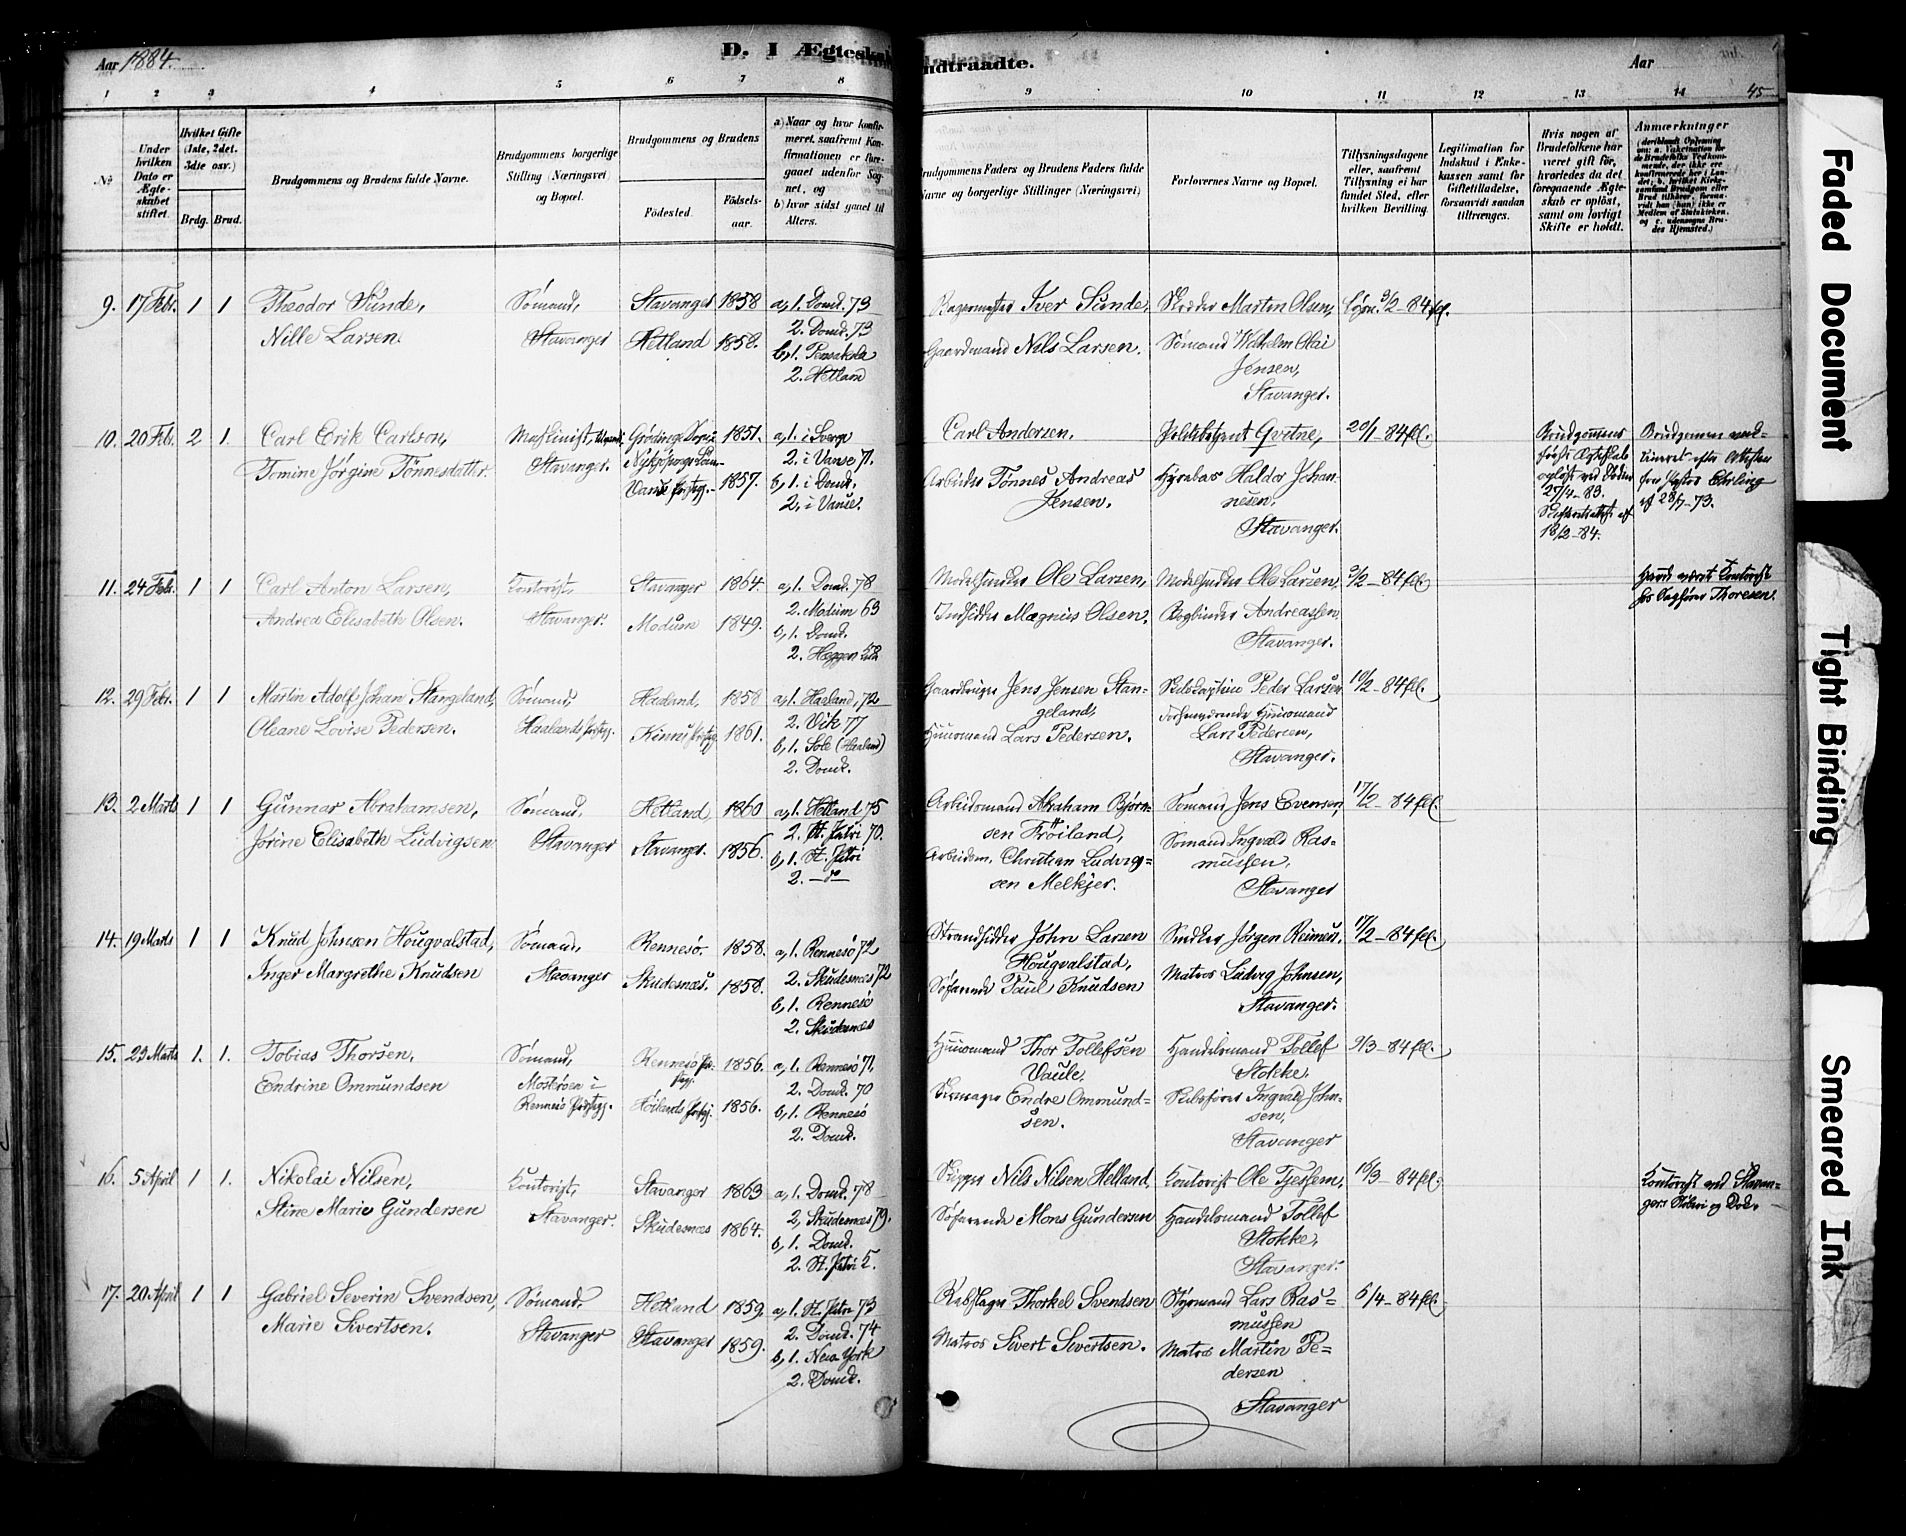 Aar 1884.
D. I Ægteska
ndtraadte.
Aar
45
1 2 3 4 5 6 7 8 9 10 11 12 13 14
№
Under hvilken Dato er Ægteskabet stiftet.
Hvilket Gifte (1ste, 2det. 3die osv.)
Brdg. Brud.
Brudgommens og Brudens fulde Navne.
Brudgommens borgerlige Stilling (Næringsvei) og Bopæl.
Brudgommens og Brudens
Födested.
Födsels-aar.
a) Naar og hvor konfirmeret, saafremt Konfirmationen er foregaaet udenfor Sognet, og
b) hvor sidst gaaet til Alters.
Brudgommens Faders og Brudens Faders fulde Navne og borgerlige Stillinger (Næringsvei)
Forlovernes Navne og Bopæl.
Tillysningsdagene eller, saafremt Tillysning ei har fundet Sted, efter hvilken Bevilling.
Legitimation for Indskud i Enkekassen samt for Giftetilladelse, forsaavidt saadan tiltrænges.
Hvis nogen af Brudefolkene har været gift för, hvorledes da det foregaaende Ægteskab er oplöst, samt om lovligt Skifte er holdt.
Anmærkninger
9. 17 Febr. 1 1 Theodor Sunde, Sømand, Stavanger 1858 a, 1. Domk. 73 Bagermester Iver Sunde, Martin Olsen, 3/2-84 fl.
Nille Larsen. Stavanger Hetland 1858. 2. Domk. 73 Gaardmand Nils Larsen. Sømand Wilhelm Olai
b, 1. Pensakola Jensen,
2. Hetland Stavanger.
10. 20 Feb. 2 1. Carl Erik Carlson, Maskinist, 1851. a, 1. i Sverge Carl Andersen. Politibetjent Qvitne, 20/1-84 fl. Brudgommens
Tomine Jørgine Tönnesdatter. Stavanger. 2. i Vanse 71. første Ægteskab
Vanse Prstgj. 1857. b, 1. i Domk. Arbeider Tönnes Andreas Hyrebas Haldor Johan- opløst ved Døden fra Pastor Ehrling
2, i Vanse. Jensen. nesen. 27/4-83. af 28/7-73.
Stavanger. Skifteattest af
18/2-84.
11. 24 Feb. 1 1 Carl Anton Larsen, Kontorist, Stavanger 1864. a, 1. Domk. 78 Ole Larsen, Ole Larsen, 3/2-84 fl. Kontorist
Andrea Elisabeth Olsen. Stavanger. Modum 1849. 2. Modum 63 Indsidder Magnus Olsen. Bogbinder Andreassen hos Sagfører Thoresen.
b, 1. Domk. Stavanger.
2. Heggen
12. 29 Febr. 1 1 Martin Adolf Johan Stangeland, Sømand, Haaland, 1858 a, 1. Haaland, 72 Gaardbruger Jens Jensen Stan- Skibskaptein Peder Larsen 10/2-84 fl.
Oleane Lovise Pedersen. Haalands Prstgj. Kinns Prstgj. 1861. 2. Vik 77 geland, Forhenværende Huusmand
b, 1. Sole (Haaland) Huusmand Lars Pedersen. Lars Pedersen,
2. Domk. Stavanger.
13. 2 Marts 1 1 Gunnar Abrahamsen, Sømand, Hetland 1860 a, 1. Hetland 75 Arbeidsmand Abraham Bjørn- Sømand Jens Evensen, 17/2-84 fl.
Jorine Elisabeth Ludvigsen Stavanger Stavanger. 1856. 2. St. Petri 70. sen Fröiland, Sømand Ingvald Ras-
b, 1. St. Petri Arbeidsm. Christian Ludvig- mussen,
2. — do — sen Melkjer. Stavanger
14. 19 Marts 1 1 Knud Johnsen Hougvalstad, Sømand, Rennesö. 1858. a, 1. Rennesö 72 Strandsidder John Larsen Snedker Jörgen Reimers. 17/2-84 fl.
Inger Margrethe Knudsen Stavanger Skudesnæs. 1858. 2. Skudesnæs 72 Hougvalstad, Matros Ludvig Johnsen,
b, 1. Rennesö Söfarende Paul Knudsen Stavanger.
2. Skudesnæs
15. 23 Marts 1. 1. Tobias Thorsen, Sømand, Rennesö Pr- 1856. a, 1. Rennesö 71. Huusmand Thor Tollefsen Handelsmand Tollef 9/3-84 fl.
Endrine Ommundsen Mosterøen i stgj. 2. Domk. 70 Vaule. Stokke,
Rennesö Prstgj. Höilands Prstgj. 1856. b, 1. Rennesö Skomager Endre Ommund- Skibsfører Ingvald John-
2. Domk. sen. sen,
Stavanger
16. 5 April 1 1. Nikolai Nilsen, Kontorist, Stavanger 1863 a, 1. Domk. 78 Skipper Nils Nilsen Helland Kontorist Ole Tjessem, 16/3-84 fl. Kontorist ved Stavan-
Stine Marie Gundersen Stavanger. Skudesnæs 1864. 2, Skudesnæs 79. Söfarende Mons Gundersen Handelsmand Tollef gers Støberi og Dok.
b, 1. Domk. Stokke,
2. St. Petri Stavanger.
17. 20 April 1 1 Gabriel Severin Svendsen, Sømand, Hetland 1859. a, 1. St. Petri 73 Rebslager Thorkel Svendsen Styrmand Lars Ras- 6/4-84 fl.
Marie Sivertsen. Stavanger Stavanger 1859. 2. Domk. 74 Matros Sivert Sivertsen. mussen
b, 1. New York Matros Martin Pe-
2. Domk. dersen
Stavanger
Faded Document
Tight Binding
Smeared Ink